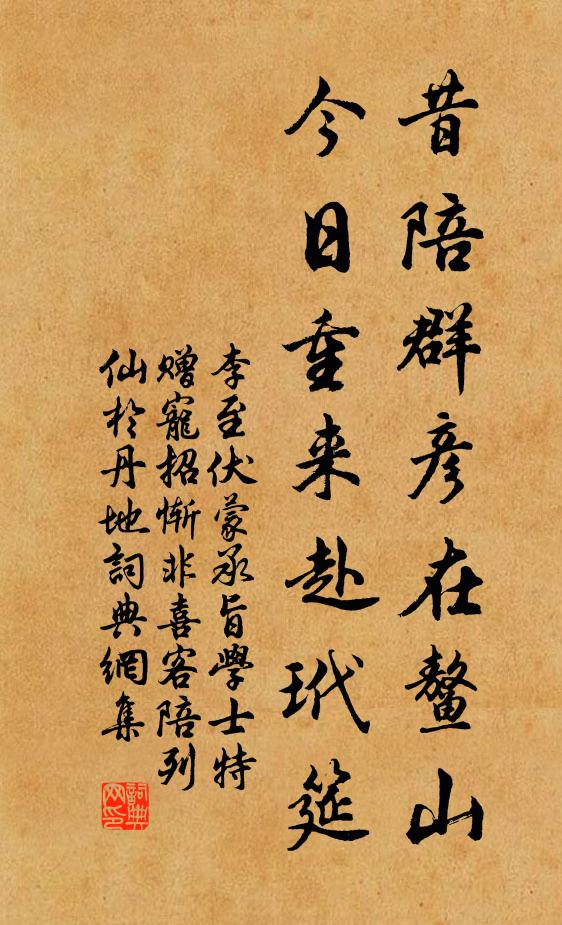 昔陪群彦在鳌山
今日重来赴玳筵
李至伏蒙承旨學士特
赠寵招慚非喜客陪列
仙於丹地詞典網集
詞典
网印